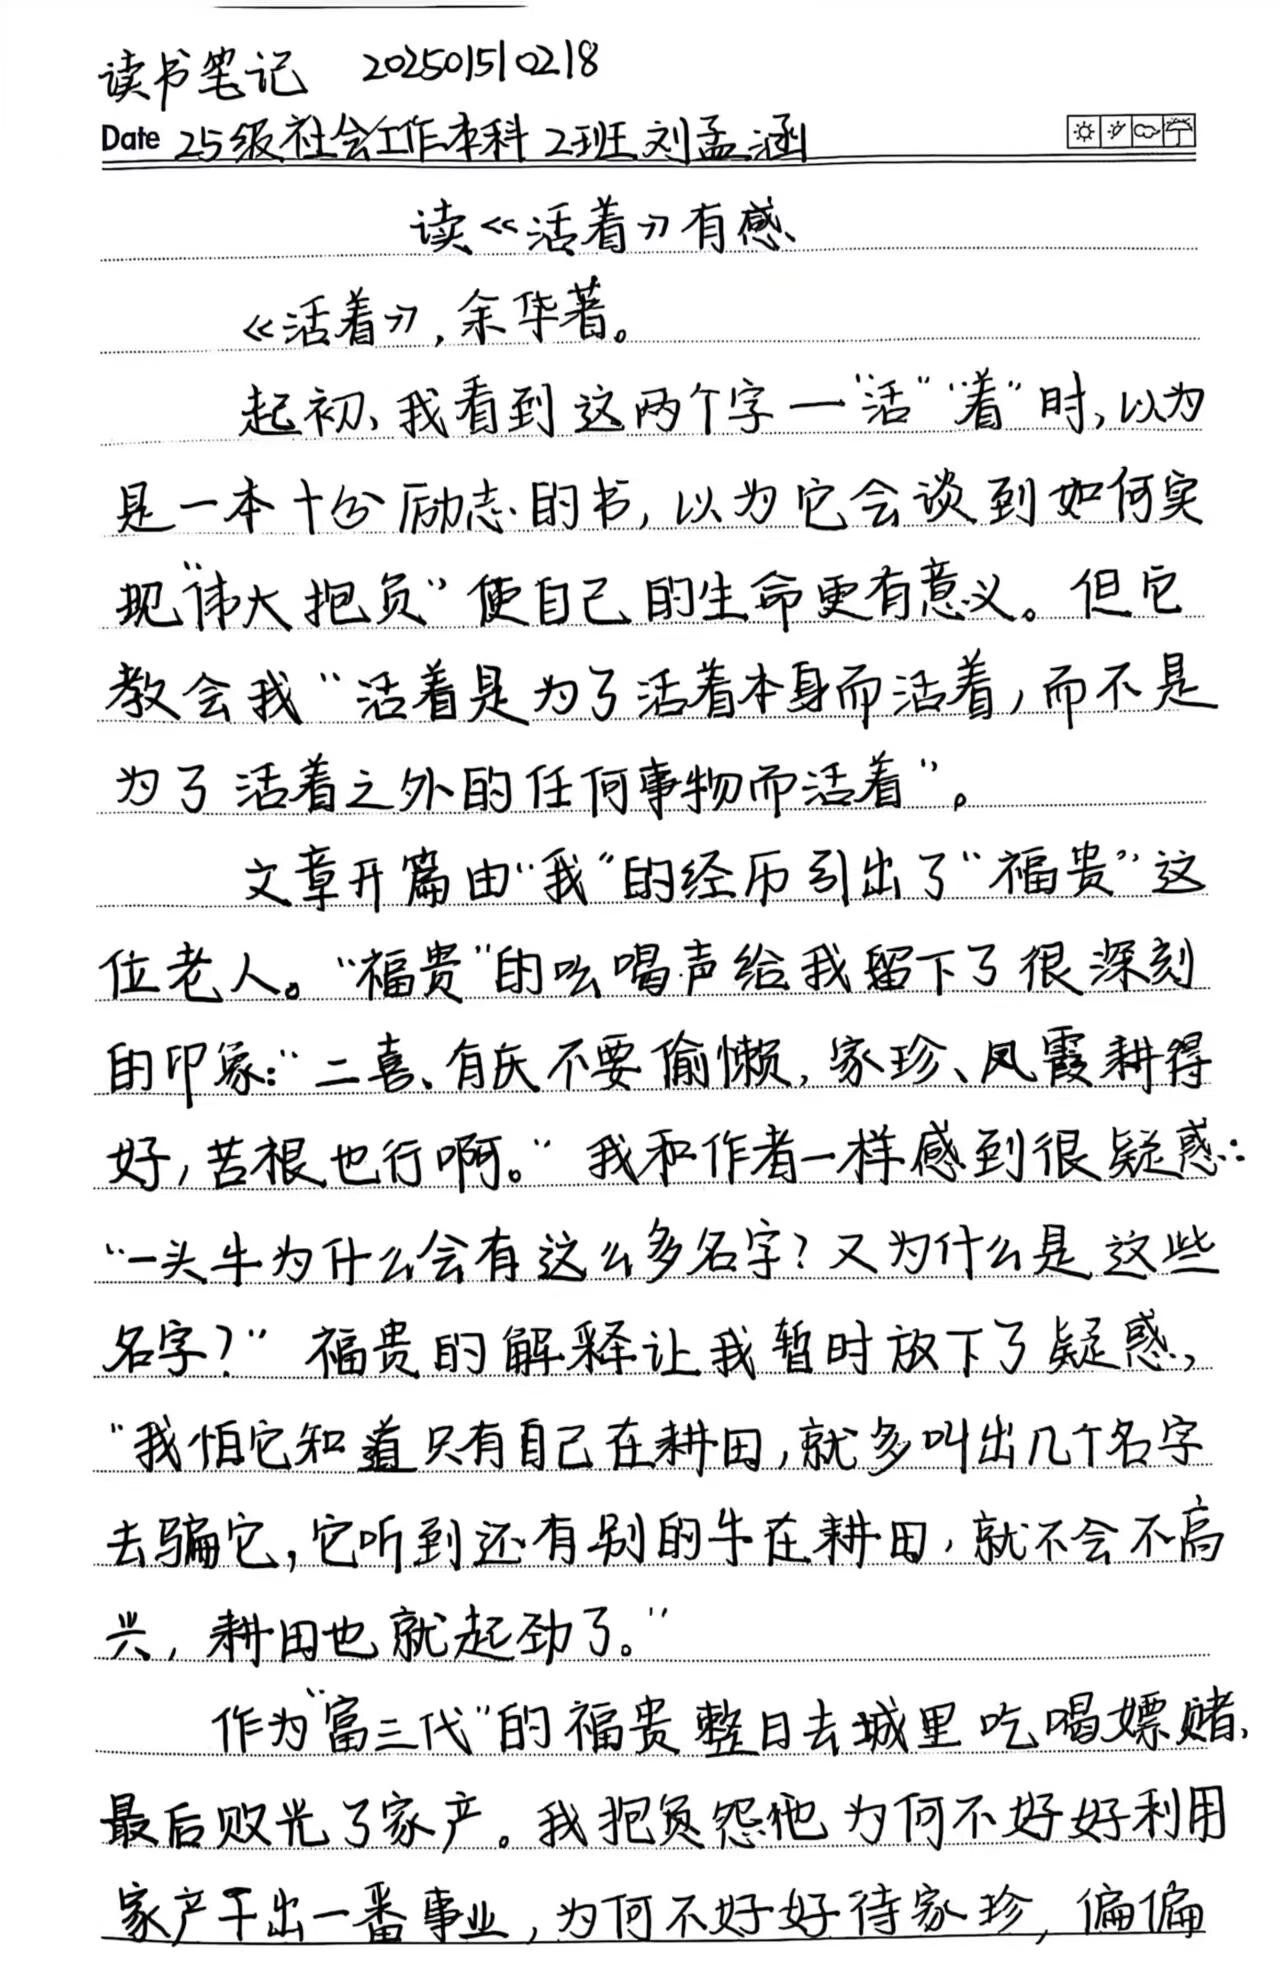 读书笔记 202501510218
Date 25级社会工作本科2班刘孟涵
读《活着》有感
《活着》,余华著。
起初、我看到这两个字一“活”“着”时,以为
是一本十分励志的书,以为它会谈到如何实
现“伟大抱负”使自己的生命更有意义。但它
教会我“活着是为了活着本身而活着,而不是
为了活着之外的任何事物而活着”。
文章开篇由“我”的经历引出了“福贵”这
位老人。“福贵”的吆喝声给我留下了很深刻
的印象:“二喜、有庆不要偷懒,家珍、凤霞耕得
好,苦根也行啊。”我和作者一样感到很疑惑:
“一头牛为什么会有这么多名字?又为什么是这些
名字?”福贵的解释让我暂时放下了疑惑,
“我怕它知道只有自己在耕田,就多叫出几个名字
去骗它,它听到还有别的牛在耕田,就不会不高
兴,耕田也就起劲了。”
作为“富三代”的福贵整日去城里吃喝嫖赌,
最后败光了家产。我抱负怨他为何不好好利用
家产干出一番事业,为何不好好待家珍,偏偏